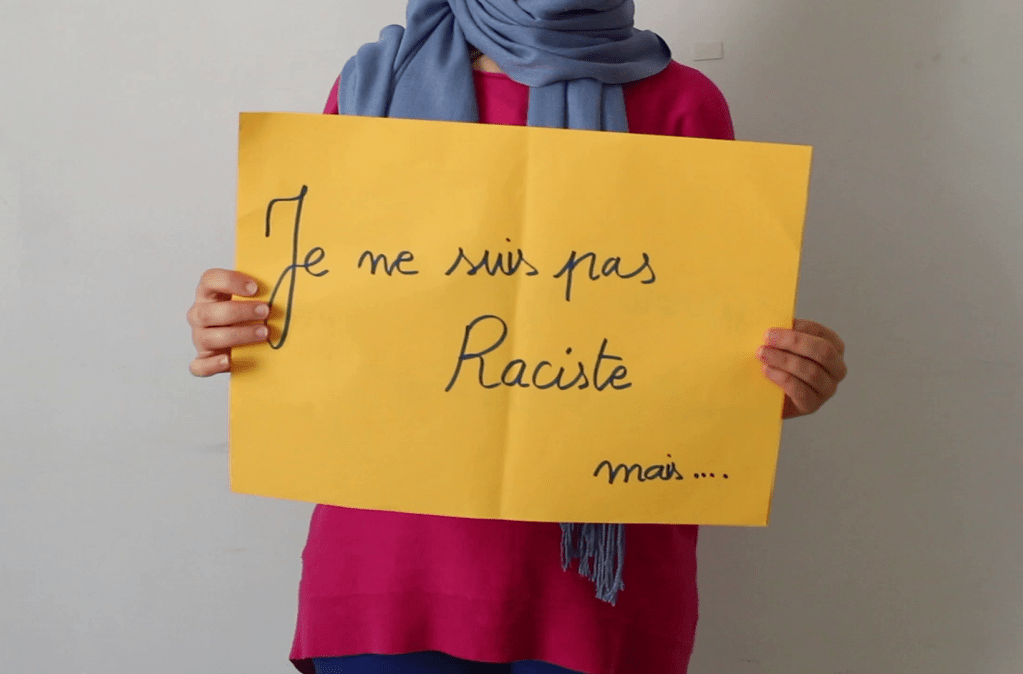 Je ne suis pas
Raciste
mais....